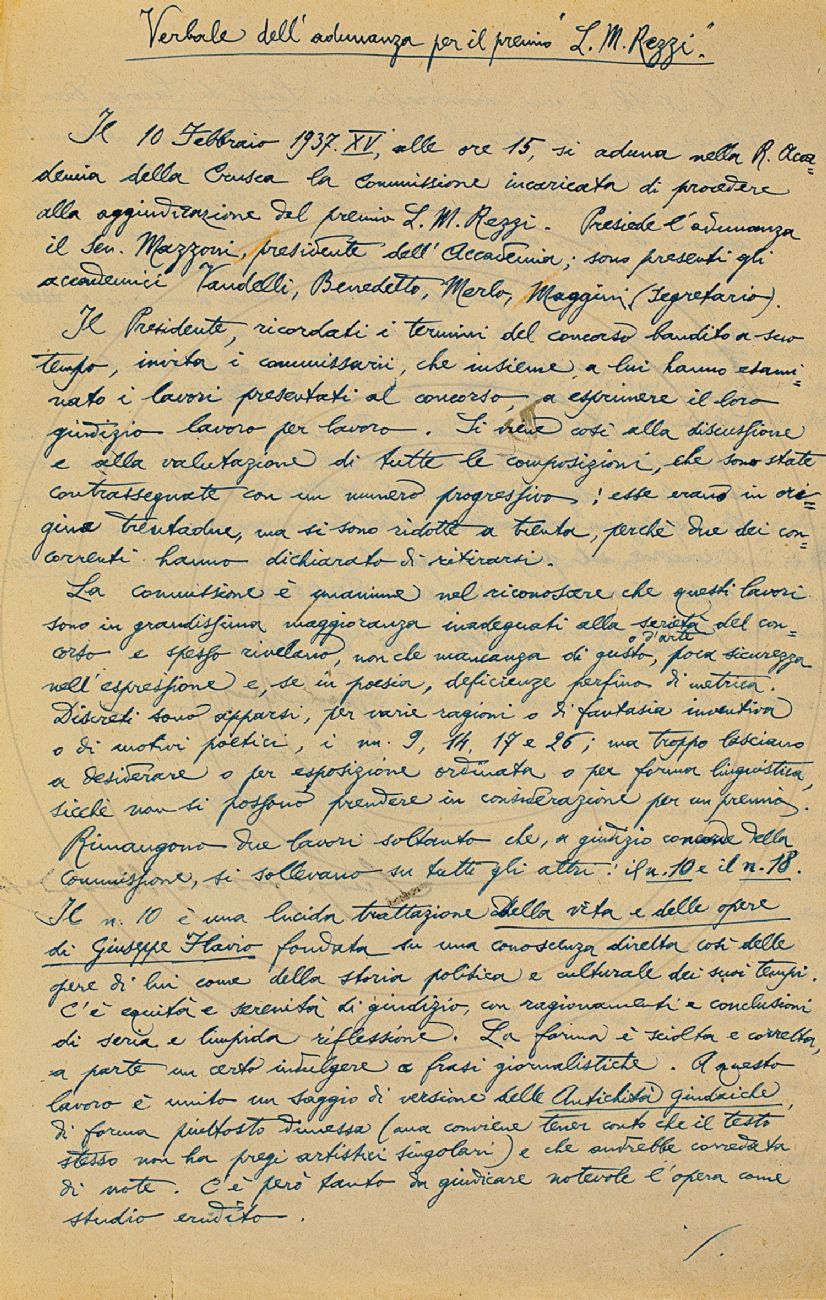 Verbale dell'adunanza per il premio "L. M. Rezzi".
Il 10 Febbraio 1937.XV, alle ore 15, si aduna nella R. Acca=
demia della Crusca la Commissione incaricata di procedere
alla aggiudicazione del premio L. M. Rezzi. Presiede l'adunanza
il Sen. Mazzoni, presidente dell'Accademia; sono presenti gli
accademici Vandelli, Benedetto, Merlo, Maggini (Segretario).
Il Presidente, ricordati i termini del concorso bandito a suo
tempo, invita i commissarii, che insieme a lui hanno esami=
nato i lavori presentati al concorso, a esprimere il loro
giudizio lavoro per lavoro. Si viene così alla discussione
e alla valutazione di tutte le composizioni, che sono state
contrassegnate con un numero progressivo; esse erano in ori=
gine trentadue, ma si sono ridotte a trenta, perchè due dei con=
correnti hanno dichiarato di ritirarsi.
La commissione è unanime nel riconoscere che questi lavori
sono in grandissima maggioranza inadeguati alla serietà del con=
corso e spesso rivelano, non che mancanza di gusto o d'arte, poca sicurezza
nell'espressione e, se in poesia, deficienze perfino di metrica.
Discreti sono apparsi, per varie ragioni o di fantasia inventiva
o di motivi poetici, i nn. 9, 14, 17 e 26; ma troppo lasciano
a desiderare o per esposizione ordinata o per forma linguistica,
sicchè non si possono prendere in considerazione per un premio.
Rimangono due lavori soltanto che, a giudizio concorde della
Commissione, si sollevano su tutti gli altri: il n. 10 e il n. 18.
Il n. 10 è una lucida trattazione Della vita e delle opere
di Giuseppe Flavio fondata su una conoscenza diretta così delle
opere di lui come della storia politica e culturale dei suoi tempi.
C'è equità e serenità di giudizio, con ragionamenti e conclusioni
di seria e limpida riflessione. La forma è sciolta e corretta,
a parte un certo indulgere a frasi giornalistiche. A questo
lavoro è unito un saggio di versione delle Antichità giudaiche,
di forma piuttosto dimessa (ma conviene tener conto che il testo
stesso non ha pregi artistici singolari) e che andrebbe corredata
di note. C'è però tanto da giudicare notevole l'opera come
studio erudito.